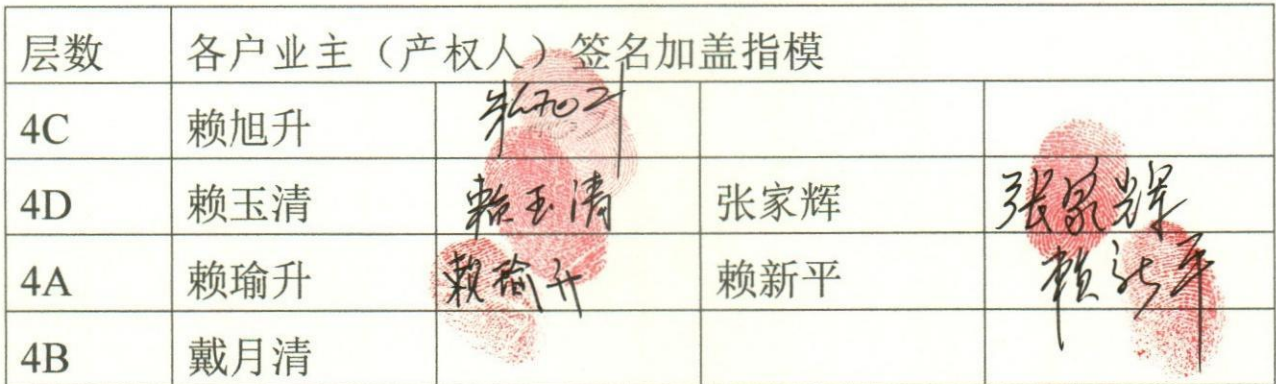 层数 各户业主（产权人）签名加盖指模
4C 赖旭升
4D 赖玉清 赖玉清 张家辉 张家辉
4A 赖瑜升 赖瑜升 赖新平 赖新平
4B 戴月清